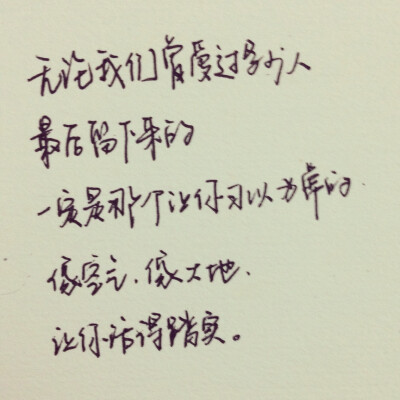 无论我们曾爱过多少人
最后留下来的
一定是那个让你习以为常的
像空气、像大地、
让你活得踏实。